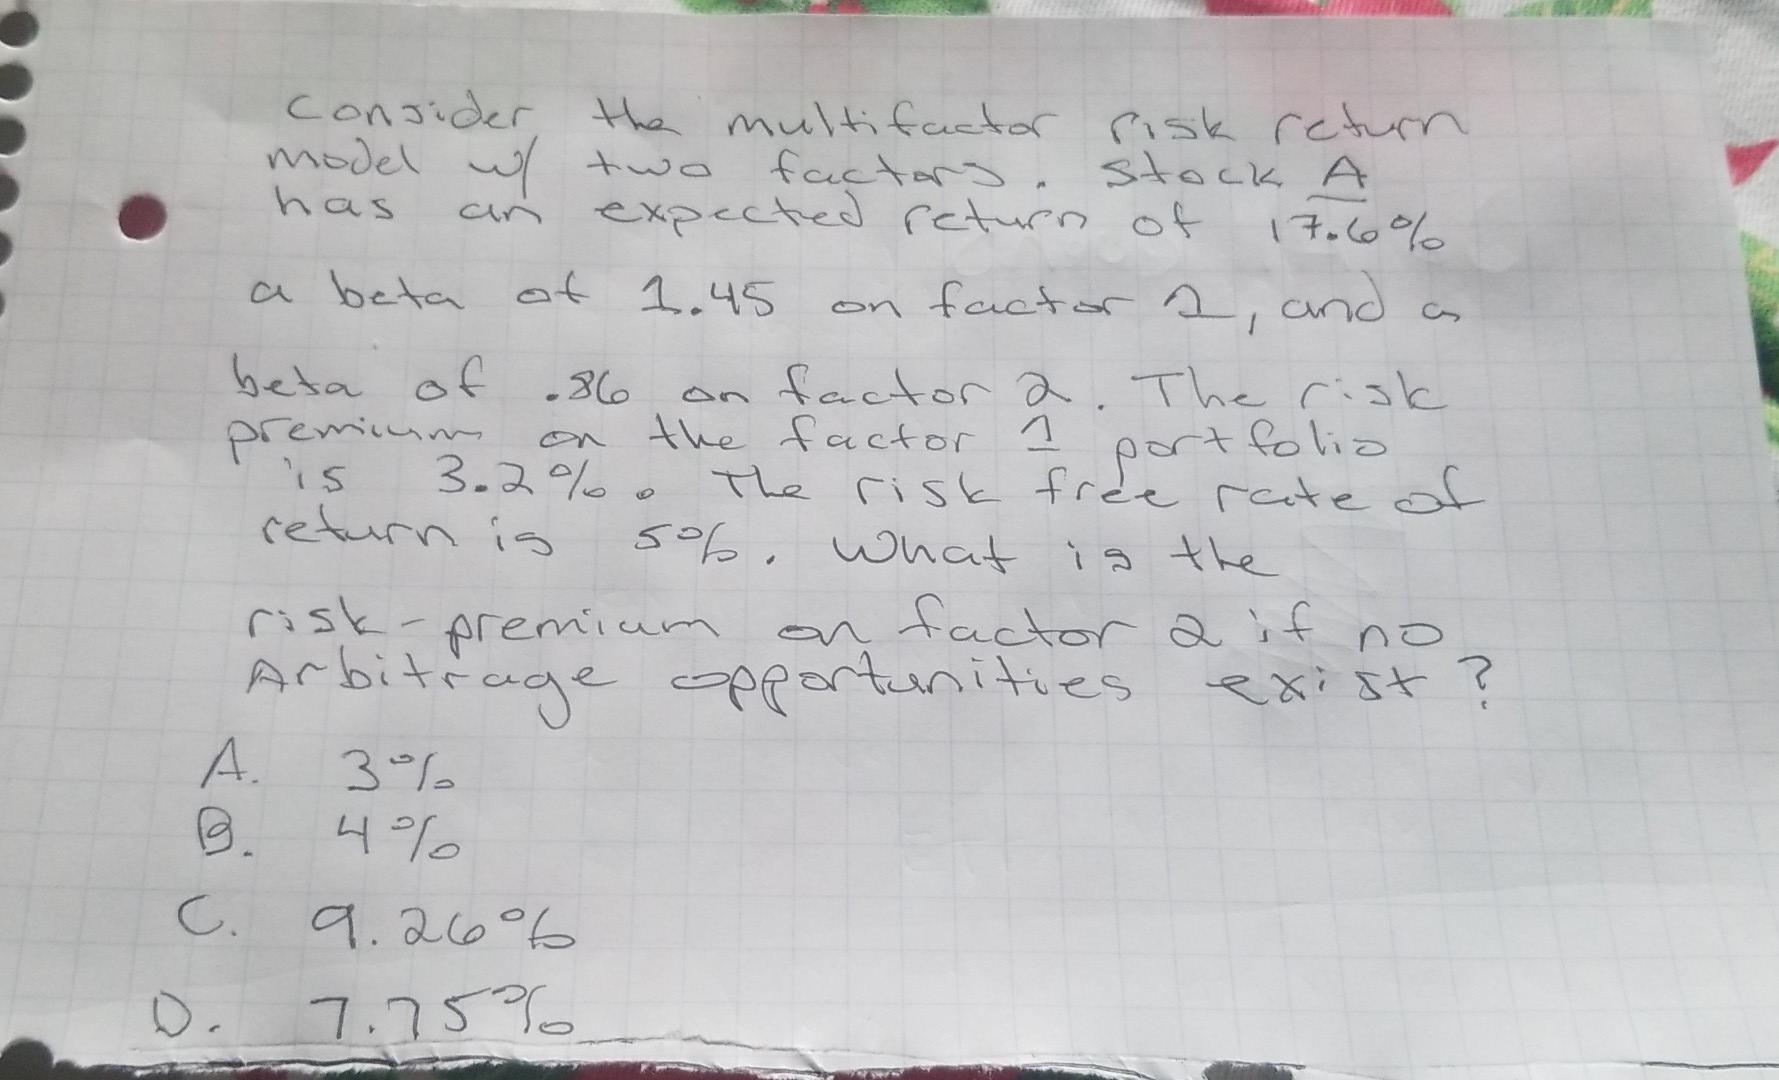 Consider the multifactor risk return
model w/ two factors. Stock A
has an expected return of 17.6%
a beta of 1.45 on factor 1, and a
beta of .86 on factor 2. The risk
premium on the factor 1 portfolio
is 3.2%. The risk free rate of
return is 5%. What is the
risk-premium on factor 2 if no
Arbitrage opportunities exist?
A. 3%
B. 4%
C. 9.26%
D. 7.75%